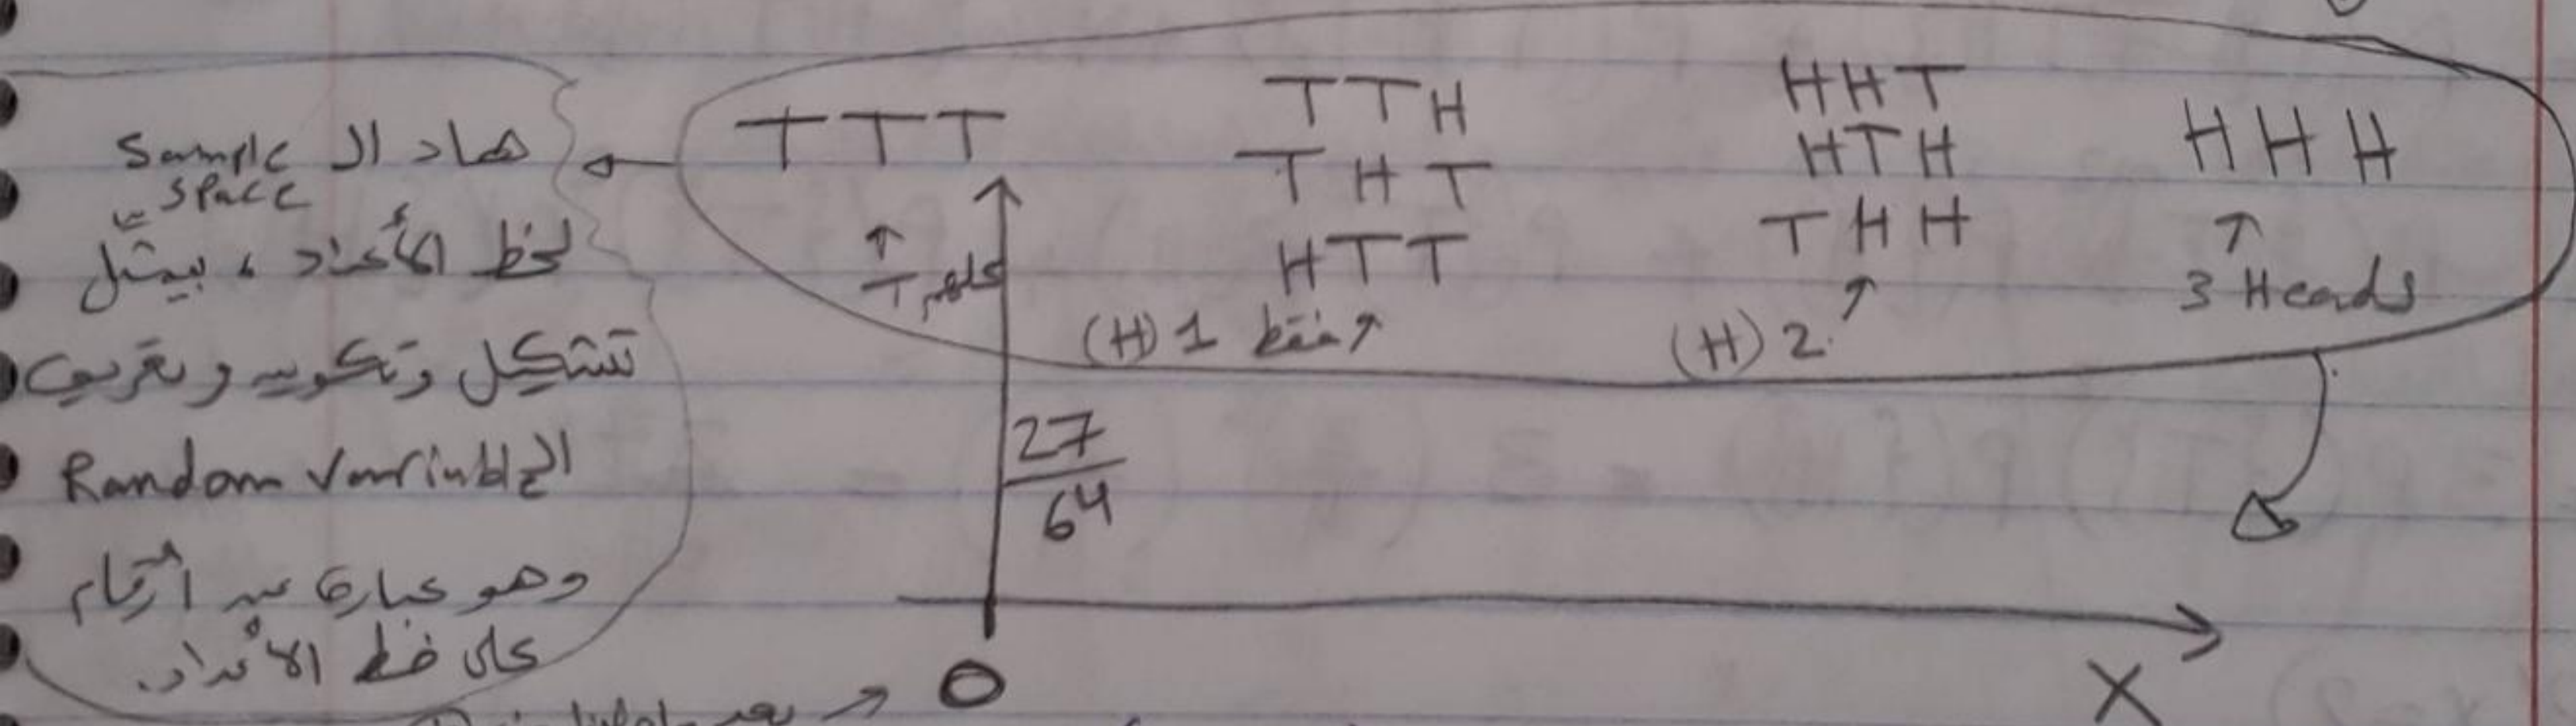 هاد الـ Sample
space
لخط الأعداد، بيمثّل
تشكيل وتكوين وتعريف
الـ Random Variable
وهو عبارة عن أرقام
على خط الأعداد.
TTT
↑
كلهم T
TTH
THT
HTT
(H) 1 فقط ↑
HHT
HTH
THH
↑
(H) 2
HHH
↑
3 Heads
27
64
0
X